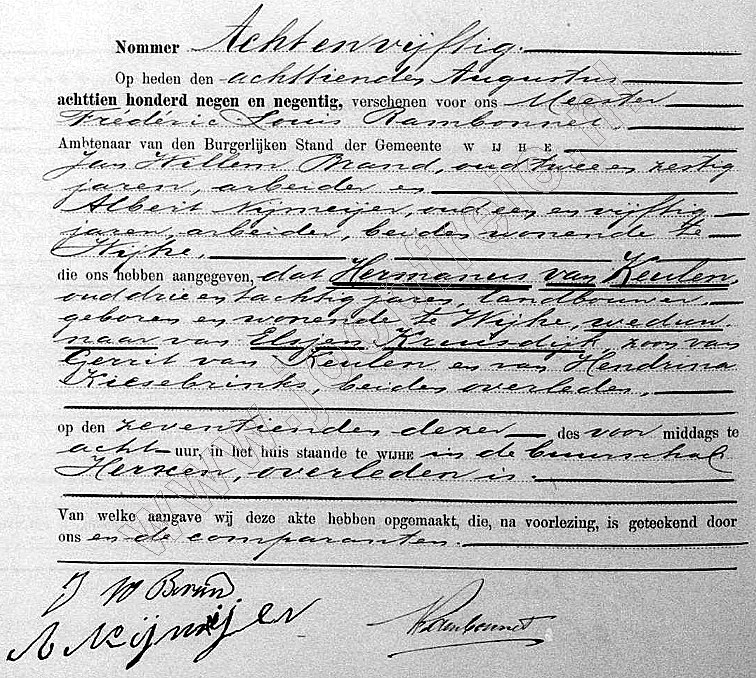 Nommer Achtenvijftig.
Op heden den achttienden Augustus
achttien honderd negen en negentig, verschenen voor ons Meester
Frédéric Louis Rambonnet,
Ambtenaar van den Burgerlijken Stand der Gemeente WIJHE
Jan Willem Brand, oud twee en zestig
jaren, arbeider en
Albert Nijmeijer, oud een en vijftig
jaren, arbeider, beiden wonende te
Wijhe,
die ons hebben aangegeven, dat Hermanus van Keulen,
oud drie en tachtig jaren, landbouwer
geboren en wonende te Wijhe, weduw-
naar van Elsjen Kruisdijk, zoon van
Gerrit van Keulen en van Hendrina
Kiesebrinks, beiden overleden,
op den zeventienden dezer des voor middags te
acht uur, in het huis staande te WIJHE in de buurschap
Herxen, overleden is.
Van welke aangave wij deze akte hebben opgemaakt, die, na voorlezing, is geteekend door
ons en de comparanten.
J W Brand
A Nijmeijer
Rambonnet